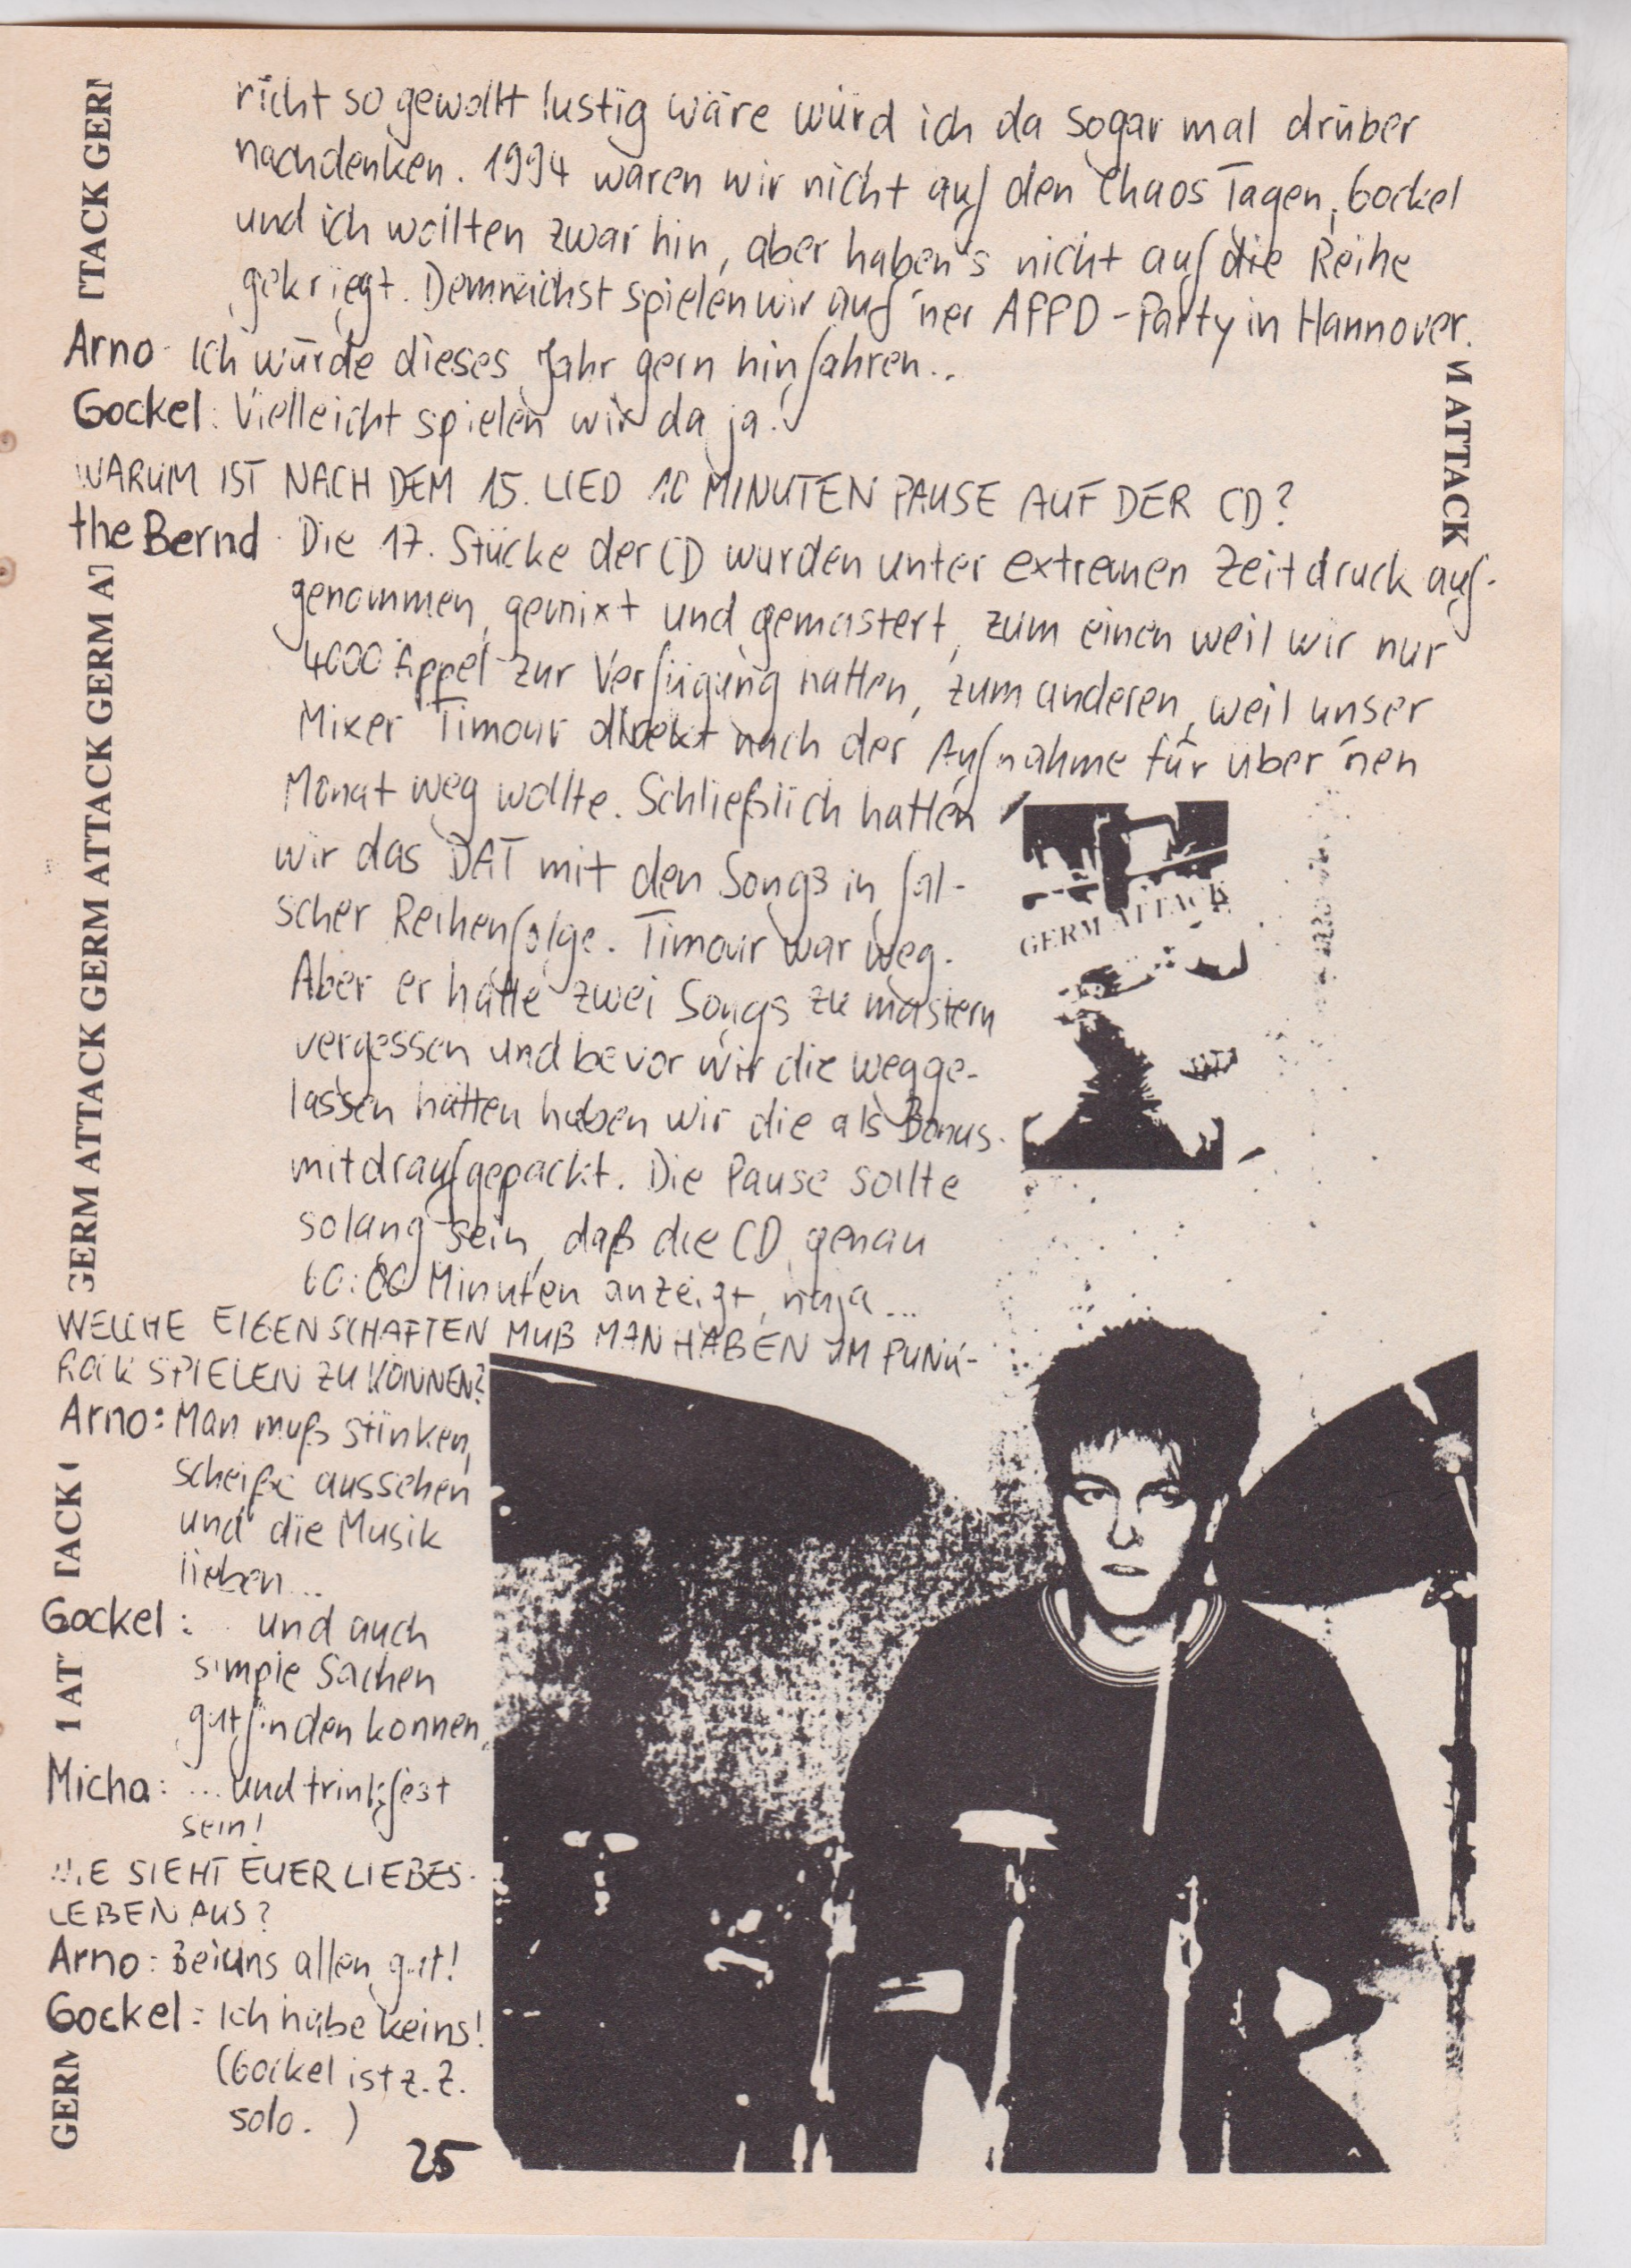 nicht so gewollt lustig wäre würd ich da sogar mal drüber
nachdenken. 1994 waren wir nicht auf den Chaos Tagen, Gockel
und ich wollten zwar hin, aber haben's nicht auf die Reihe
gekriegt. Demnächst spielen wir auf 'ner APPD-Party in Hannover.
Arno: Ich würde dieses Jahr gern hinfahren..
Gockel: Vielleicht spielen wir da ja!
WARUM IST NACH DEM 15. LIED 10 MINUTEN PAUSE AUF DER CD?
the Bernd: Die 17. Stücke der CD wurden unter extremen Zeitdruck auf-
genommen, gemixt und gemastert, zum einen weil wir nur
4000 Äppel zur Verfügung hatten, zum anderen, weil unser
Mixer Timour direkt nach der Aufnahme für über 'nen
Monat weg wollte. Schließlich hatten
wir das DAT mit den Songs in fal-
scher Reihenfolge. Timour war weg.
Aber er hatte zwei Songs zu mastern
vergessen und bevor wir die wegge-
lassen hätten haben wir die als Bonus
mitdraufgepackt. Die Pause sollte
solang sein, daß die CD genau
60:00 Minuten anzeigt, naja...
WELCHE EIGENSCHAFTEN MUß MAN HABEN UM PUNK-
ROCK SPIELEN ZU KÖNNEN?
Arno: Man muß stinken,
scheiße aussehen
und die Musik
lieben...
Gockel: .. und auch
simple Sachen
gutfinden können,
Micha: ...und trinkfest
sein!
WIE SIEHT EUER LIEBES-
LEBEN AUS?
Arno: Bei uns allen gut!
Gockel: Ich habe keins!
(Gockel ist z.Z.
solo. )
25
TTACK GERM
GERM ATTACK GERM ATTACK GERM ATTACK GERM AT
TACK
1 AT
GERM
M ATTACK
GERM ATTACK